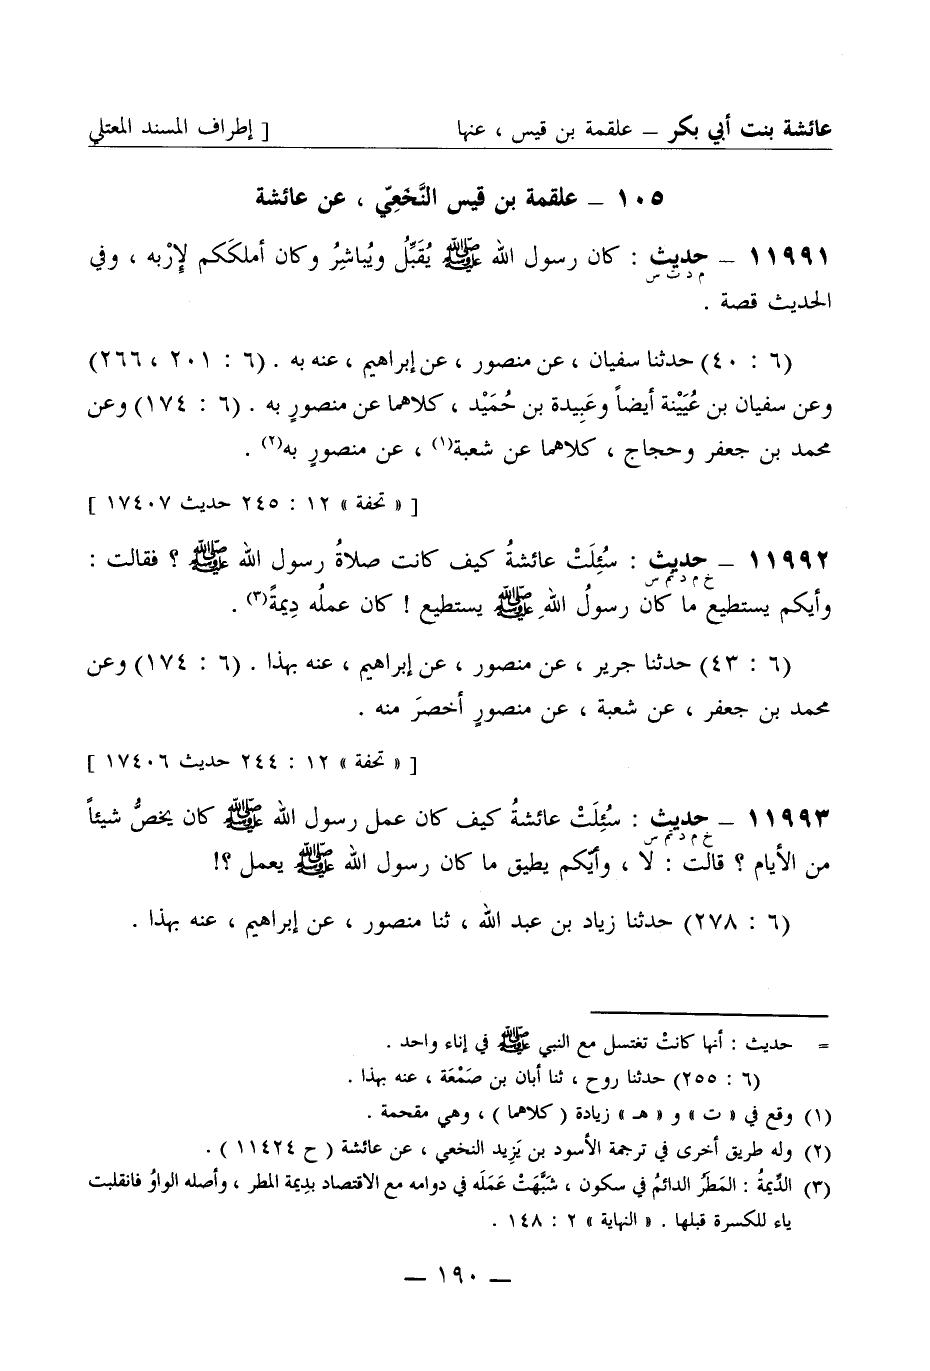 عائشة بنت أبي بكر – علقمة بن قيس ، عنها [ إطراف المسند المعتلي
١٠٥ – علقمة بن قيس النَّخَعِيّ ، عن عائشة
١١٩٩١ – حديث : كان رسول الله ﷺ يُقَبِّلُ ويُباشِرُ وكان أملكَكم لإرْبه ، وفي
م د ت س
الحديث قصة .
(٦ : ٤٠) حدثنا سفيان ، عن منصور ، عن إبراهيم ، عنه به . (٦ : ٢٠١ ، ٢٦٦)
وعن سفيان بن عُيَيْنة أيضاً وعَبِيدة بن حُمَيْد ، كلاهما عن منصورٍ به . (٦ : ١٧٤) وعن
محمد بن جعفر وحجاج ، كلاهما عن شعبة(١) ، عن منصورٍ به(٢) .
[ « تحفة » ١٢ : ٢٤٥ حديث ١٧٤٠٧ ]
١١٩٩٢ – حديث : سُئِلَتْ عائشةُ كيف كانت صلاةُ رسول الله ﷺ ؟ فقالت :
خ م د تم س
وأيكم يستطيع ما كان رسولُ اللهِ ﷺ يستطيع ! كان عملُه دِيمةً(٣) .
(٦ : ٤٣) حدثنا جرير ، عن منصور ، عن إبراهيم ، عنه بهذا . (٦ : ١٧٤) وعن
محمد بن جعفر ، عن شعبة ، عن منصورٍ أخصرَ منه .
[ « تحفة » ١٢ : ٢٤٤ حديث ١٧٤٠٦ ]
١١٩٩٣ – حديث : سُئِلَتْ عائشةُ كيف كان عمل رسول الله ﷺ كان يخصُّ شيئاً
خ م د تم س
من الأيام ؟ قالت : لا ، وأيّكم يطيق ما كان رسول الله ﷺ يعمل ؟!
(٦ : ٢٧٨) حدثنا زياد بن عبد الله ، ثنا منصور ، عن إبراهيم ، عنه بهذا .
= حديث : أنها كانتْ تغتسل مع النبي ﷺ في إناء واحد .
(٦ : ٢٥٥) حدثنا روح ، ثنا أبان بن صَمْعَة ، عنه بهذا .
(١) وقع في « ت » و « هـ » زيادة ( كلاهما ) ، وهي مقحمة .
(٢) وله طريق أخرى في ترجمة الأسود بن يَزِيد النخعي ، عن عائشة ( ح ١١٤٢٤ ) .
(٣) الدِّيمةُ : المَطَرُ الدائمُ في سكون ، شَبَّهَتْ عَمَلَه في دوامه مع الاقتصاد بدِيمة المطر ، وأصله الواوُ فانقلبت
ياء للكسرة قبلها . « النهاية » ٢ : ١٤٨ .
– ١٩٠ –